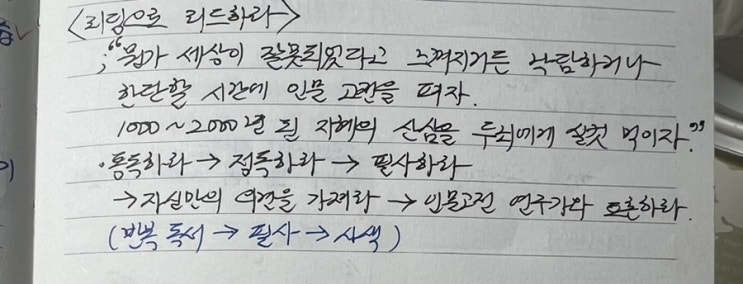 <리딩으로 리드하라>
; "뭔가 세상이 잘못되었다고 느껴지거든 낙담하거나
한탄할 시간에 인문 고전을 펴자.
1000~2000년 된 지혜의 산삼을 두뇌에게 실컷 먹이자."
·통독하라 → 정독하라 → 필사하라
→ 자신만의 의견을 가져라 → 인문고전 연구가와 토론하라.
(반복 독서 → 필사 → 사색)